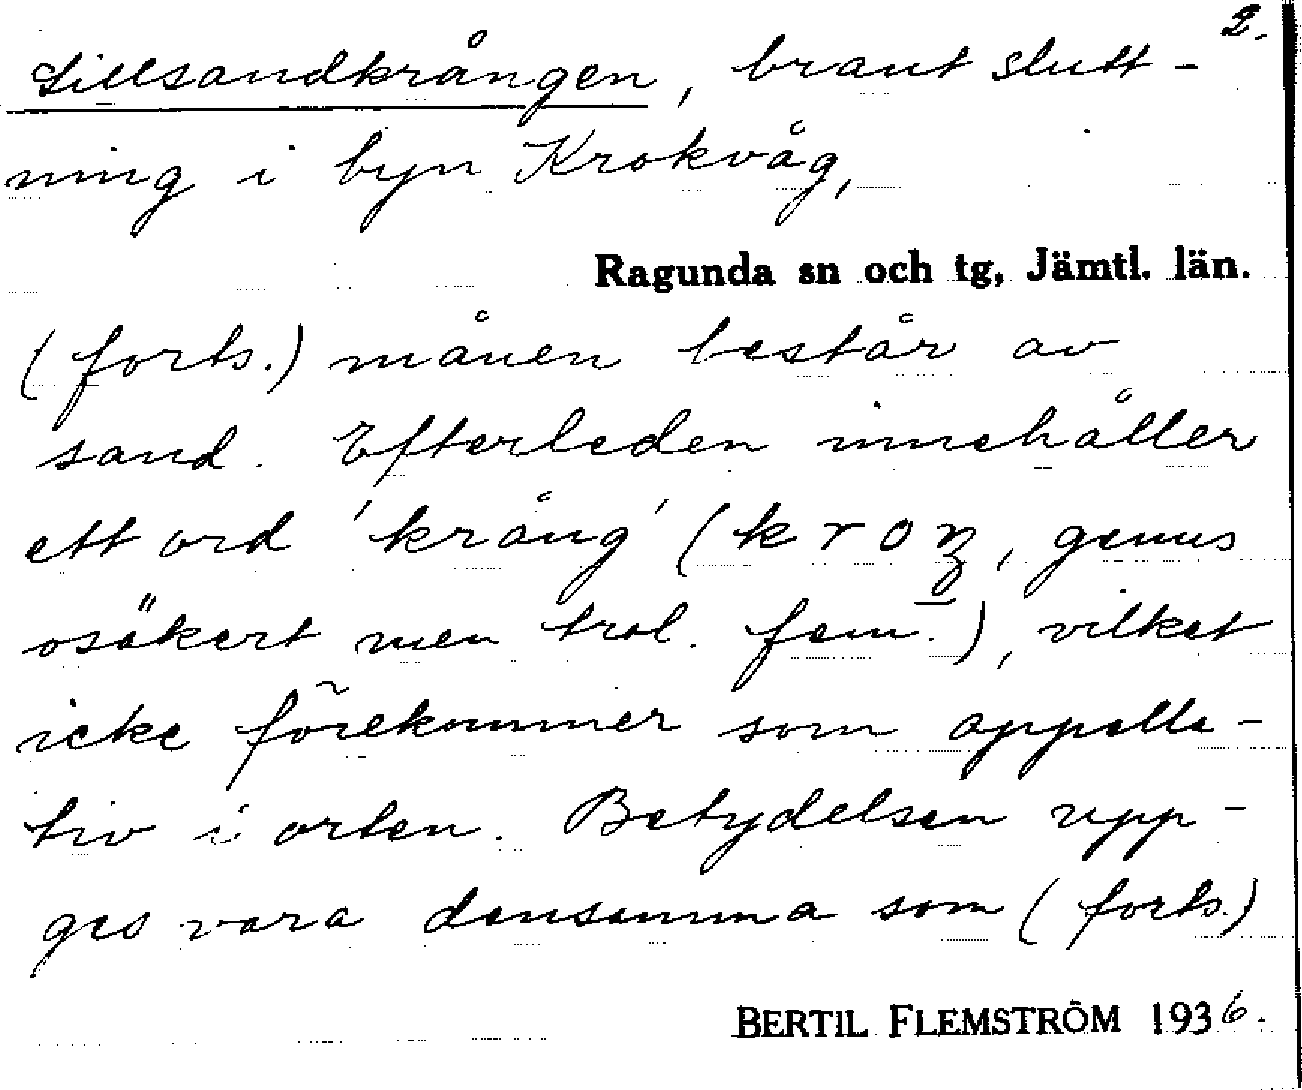 2.
Lillsandkrången, brant slutt-
ning i byn Krokvåg,
Ragunda sn och tg, Jämtl. län.
(forts.) månen består av
sand. Efterleden innehåller
ett ord 'krång' (kroŋ, genus
osäkert men trol. fem.), vilket
icke förekommer som appella-
tiv i orten. Betydelsen upp-
ges vara densamma som (forts.)
BERTIL FLEMSTRÖM 1936.